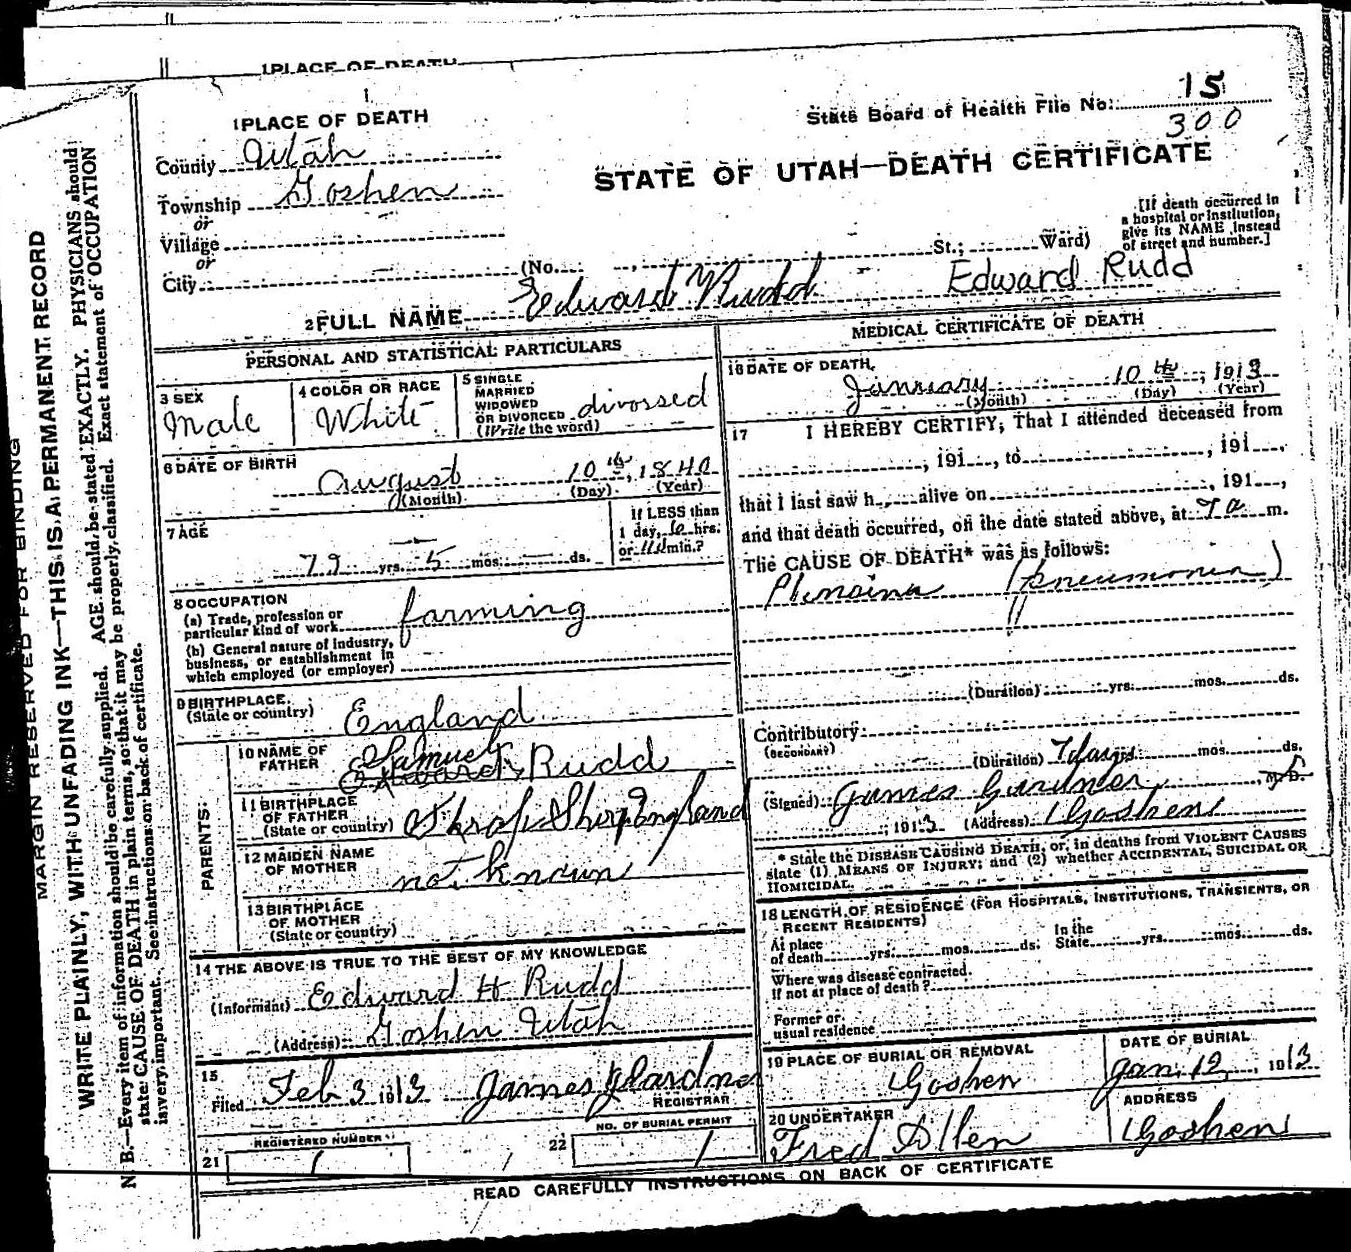 1 PLACE OF DEATH
1 PLACE OF DEATH
State Board of Health File No. 15
300
County Utah
STATE OF UTAH—DEATH CERTIFICATE
Township Goshen
or
Village
or
City
(No. , St.; Ward)
[If death occurred in
a hospital or institution,
give its NAME instead
of street and number.]
2 FULL NAME Edward Rudd Edward Rudd
PERSONAL AND STATISTICAL PARTICULARS
3 SEX
Male
4 COLOR OR RACE
White
5 SINGLE
MARRIED
WIDOWED
OR DIVORCED
(Write the word)
divossed
6 DATE OF BIRTH
August 10th, 1840
(Month) (Day) (Year)
7 AGE
79 yrs. 5 mos. ds.
If LESS than
1 day, hrs.
or min.?
8 OCCUPATION
(a) Trade, profession or
particular kind of work farming
(b) General nature of industry,
business, or establishment in
which employed (or employer)
9 BIRTHPLACE
(State or country) England
PARENTS
10 NAME OF
FATHER Samuel Rudd
11 BIRTHPLACE
OF FATHER
(State or country) England
12 MAIDEN NAME
OF MOTHER not known
13 BIRTHPLACE
OF MOTHER
(State or country)
14 THE ABOVE IS TRUE TO THE BEST OF MY KNOWLEDGE
(Informant) Edward H Rudd
(Address) Goshen Utah
15
Filed Feb 3 1913 James
REGISTRAR
REGISTERED NUMBER
21 1
NO. OF BURIAL PERMIT
22 1
MEDICAL CERTIFICATE OF DEATH
16 DATE OF DEATH
January 10th, 1913
(Month) (Day) (Year)
17 I HEREBY CERTIFY, That I attended deceased from
, 191 , to , 191 ,
that I last saw h alive on , 191 ,
and that death occurred, on the date stated above, at 7 a m.
The CAUSE OF DEATH* was as follows:
(pneumonia)
(Duration) yrs. mos. ds.
Contributory
(SECONDARY)
(Duration) 7 days mos. ds.
(Signed) James Gardner, M.D.
, 1913 (Address) Goshen
* State the DISEASE CAUSING DEATH, or, in deaths from VIOLENT CAUSES
state (1) MEANS OF INJURY; and (2) whether ACCIDENTAL, SUICIDAL OR
HOMICIDAL.
18 LENGTH OF RESIDENCE (FOR HOSPITALS, INSTITUTIONS, TRANSIENTS, OR
RECENT RESIDENTS)
At place
of death yrs. mos. ds.
In the
State yrs. mos. ds.
Where was disease contracted,
if not at place of death?
Former or
usual residence
19 PLACE OF BURIAL OR REMOVAL
Goshen
DATE OF BURIAL
Jan. 12, 1913
20 UNDERTAKER
Fred Allen
ADDRESS
Goshen
READ CAREFULLY INSTRUCTIONS ON BACK OF CERTIFICATE
MARGIN RESERVED FOR BINDING
WRITE PLAINLY, WITH UNFADING INK—THIS IS A PERMANENT RECORD
N. B.—Every item of information should be carefully supplied. AGE should be stated EXACTLY. PHYSICIANS should
state CAUSE OF DEATH in plain terms, so that it may be properly classified. Exact statement of OCCUPATION
is very important. See instructions on back of certificate.